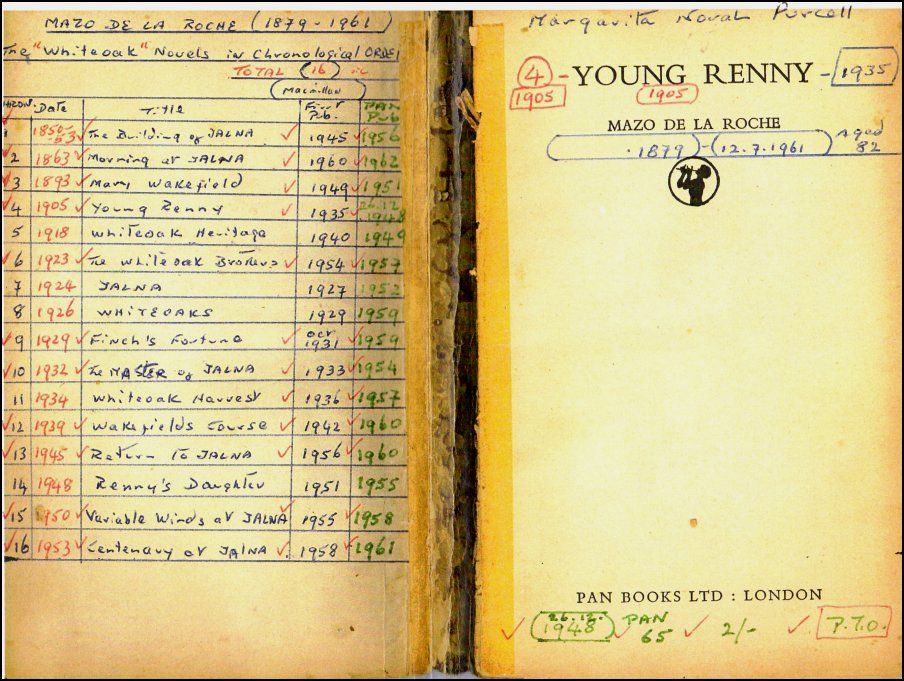 MAZO DE LA ROCHE (1879-1961)
The "Whiteoak" Novels in Chronological ORDER
TOTAL (16)
(Macmillan)
Date TITLE First Pub. PAN Pub
1 1850-53 The Building of JALNA 1945 1956
2 1863 Morning at JALNA 1960 1962
3 1893 Mary Wakefield 1949 1951
4 1905 Young Renny 1935 26.12.1948
5 1918 Whiteoak Heritage 1940 1949
6 1923 The Whiteoak Brothers 1954 1957
7 1924 JALNA 1927 1952
8 1926 WHITEOAKS 1929 1959
9 1929 Finch's Fortune Oct 1931 1959
10 1932 The MASTER of JALNA 1933 1954
11 1934 Whiteoak Harvest 1936 1957
12 1939 Wakefields Course 1942 1960
13 1945 Return to JALNA 1956 1960
14 1948 Renny's Daughter 1951 1955
15 1950 Variable Winds at JALNA 1955 1958
16 1953 Centenary at JALNA 1958 1961
Margarita Noval Purcell
4 - YOUNG RENNY - 1935
1905 (1905)
MAZO DE LA ROCHE
1879)-(12.7.1961) Aged 82
PAN BOOKS LTD : LONDON
26.12.1948 PAN 65 2/- P.T.O.